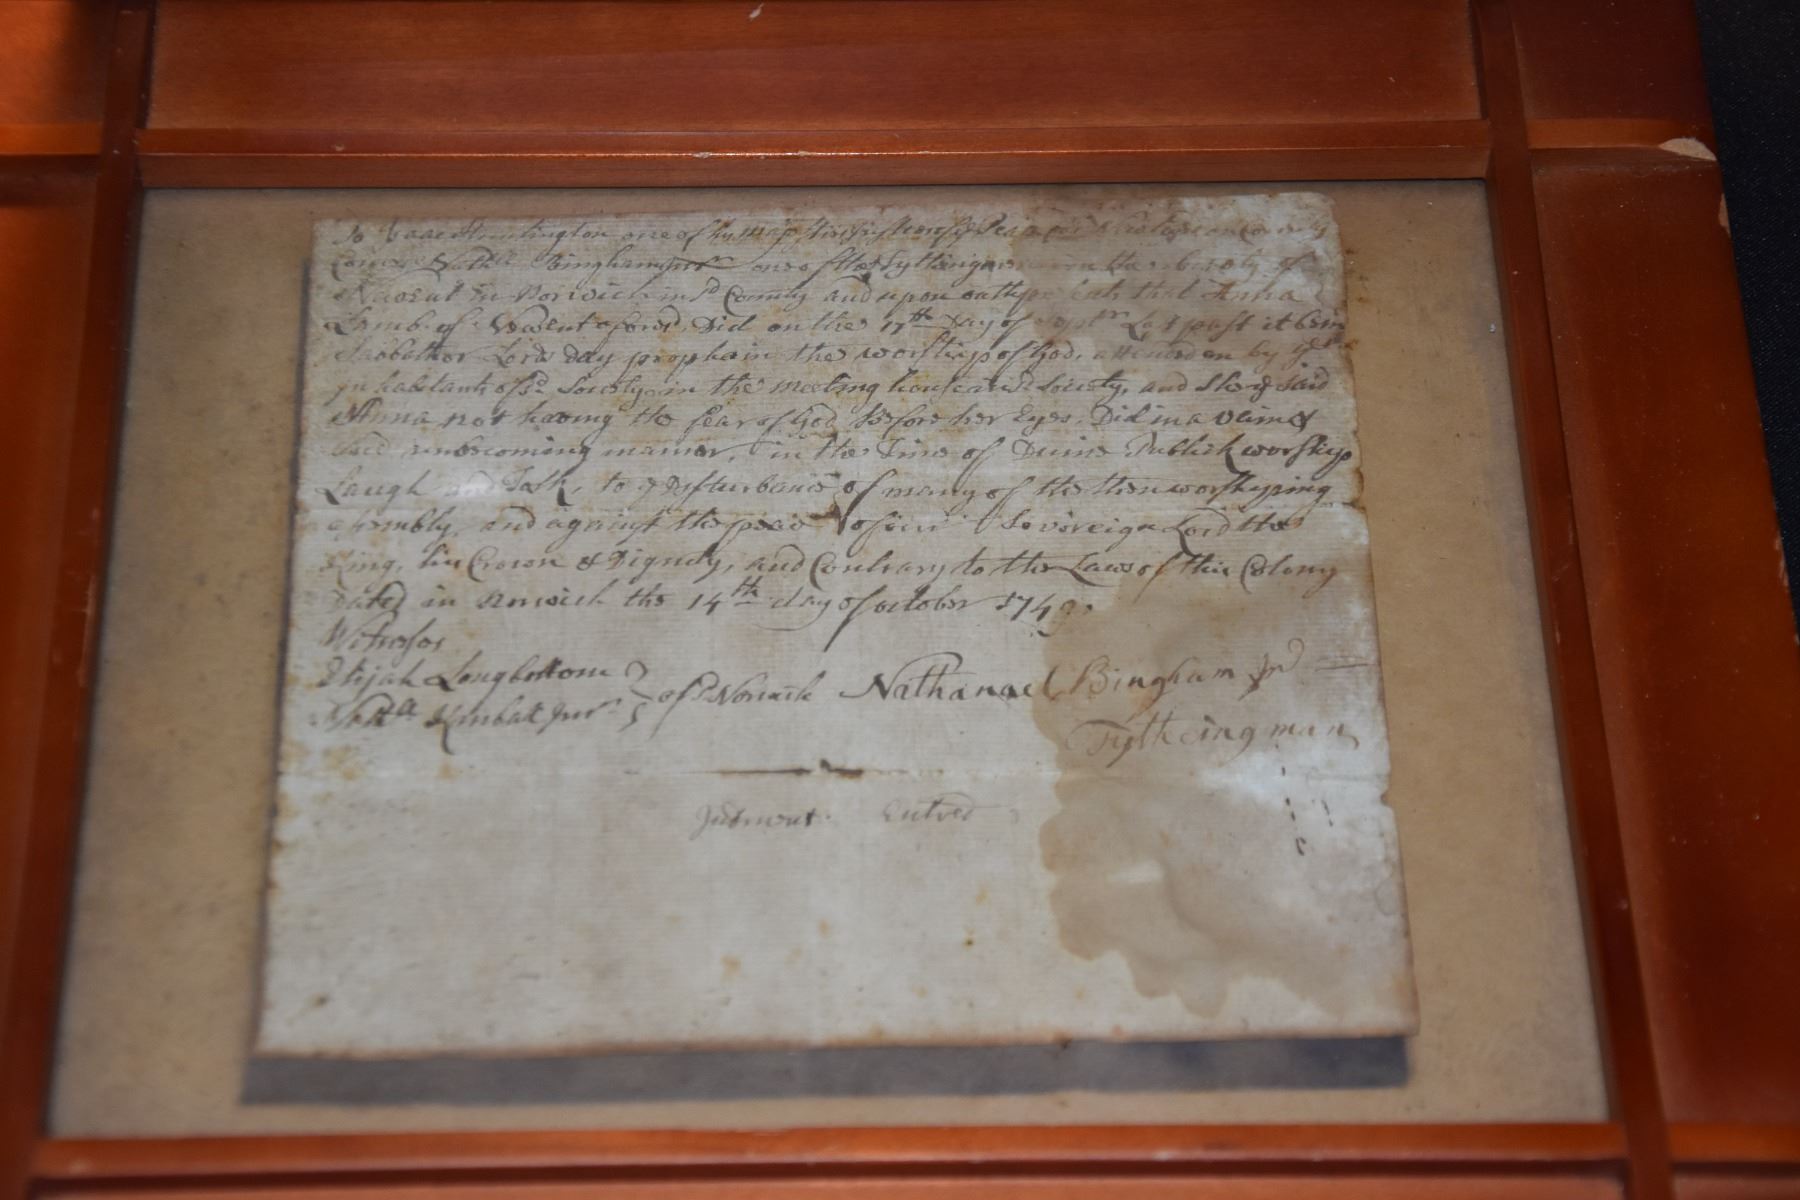 To Isaac Huntington one of his Majesties Justices of ye Peace for County
Comes Nathll Bingham junr one of the Tythingmen in the society of
Newent in Norwich in sd County and upon oath that Anna
Lamb of Newent aforsd, Did on the 17th Day of Septr Last past it being
Sabbath or Lords day prophain the worship of God, attended on by ye
inhabitants of sd Society, in the meeting house in sd Society, and She ye said
Anna not having the fear of God Before her Eyes, Did in a vain &
unbecoming manner, in the Time of Divine Publick worship
Laugh and Talk, to ye Disturbance of many of the then worshyping
Assembly, and against the peace of our Sovereign Lord the
King, his Crown & Dignity, and Contrary to the Laws of this Colony
Dated in Norwich the 14th day of october 174
Witnesses
Elijah Longbottom
Junr } of sd Norwich Nathanael Bingham Jnr
Tytheing man
Judment Entred